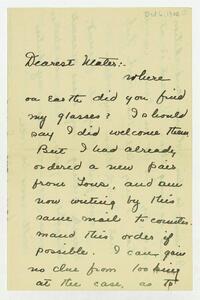 Oct 6, 1908
Dearest Mater:-
where
on Earth did you find
my glasses? I should
say I did welcome them.
But I had already
ordered a new pair
from Tours, and am
now writing by this
same mail to counter-
mand this order if
possible. I can gain
no clue from looking
at the case, as to